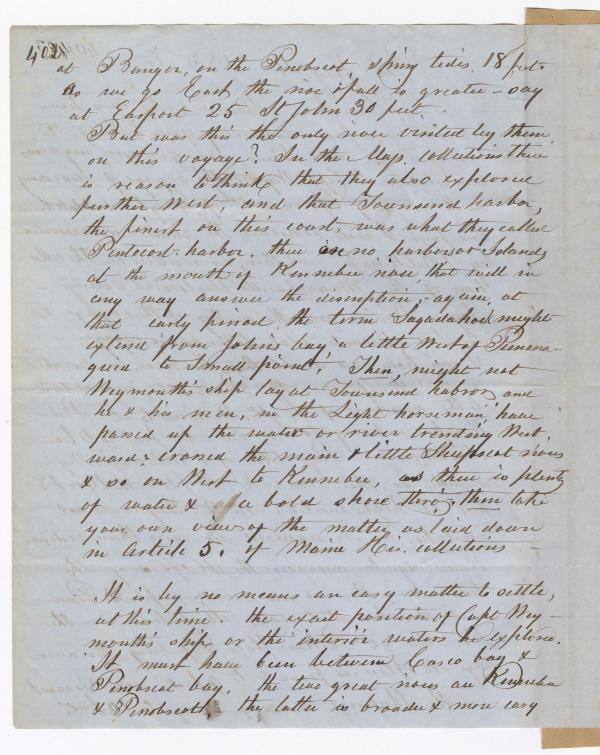 at Bangor, on the Penobscot, Spring tides. 18 feet.
As we go East the rise & fall is greater - say
at Easport 25 St John 30 feet.
But was this the only river visited by them
on this voyage? In the Mass. collections there
is reason to think that they also explored
further West, and that Townsend harbor,
the finest on this coast, was what they called
Pentecost-harbor. there is no harbor or Islands
at the mouth of Kennebec river, that will in
any way answer the discription, again, at
that early period the term Sagadahoc might
extend from Johns bay a little West of Pema-
quid to Small point. Then, might not
Weymouth's ship lay at Townsend habror, and
he & his men, in the Light horseman, have
passed up the water or river trending West
ward; crossed the main & little Sheepscot rivers
& so on West to Kennebec, as there is plenty
of water & a bold shore thro', then take
your own view of the matter, as laid down
in article 5. of Maine His. collutions -
It is by no means an easy matter to settle,
at this time. the exact position of Capt Wey-
mouth's ship or the interior waters he explored.
It must have been between Casco bay &
Penobscat bay. the two great rivers are Kennebec
& Penobscott, the latter is broader & more easy